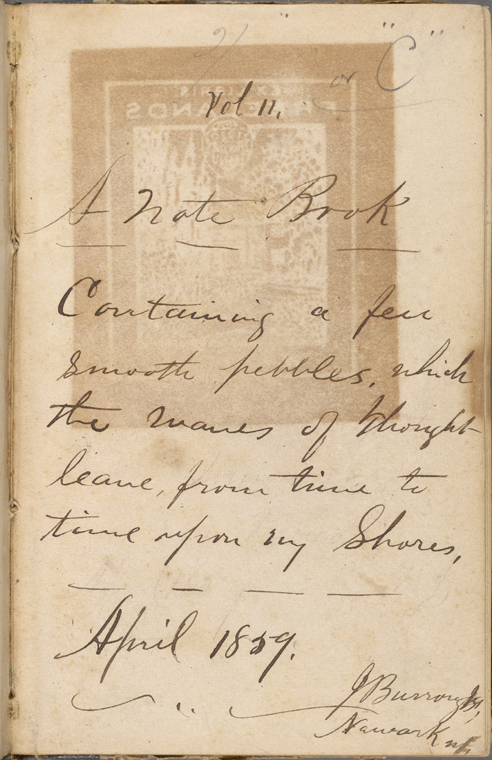 Vol II. or "C"
A Note Book
Containing a few
smooth pebbles, which
the waves of thought
leave, from time to
time upon my Shores,
April 1859.
J Burroughs,
Newark